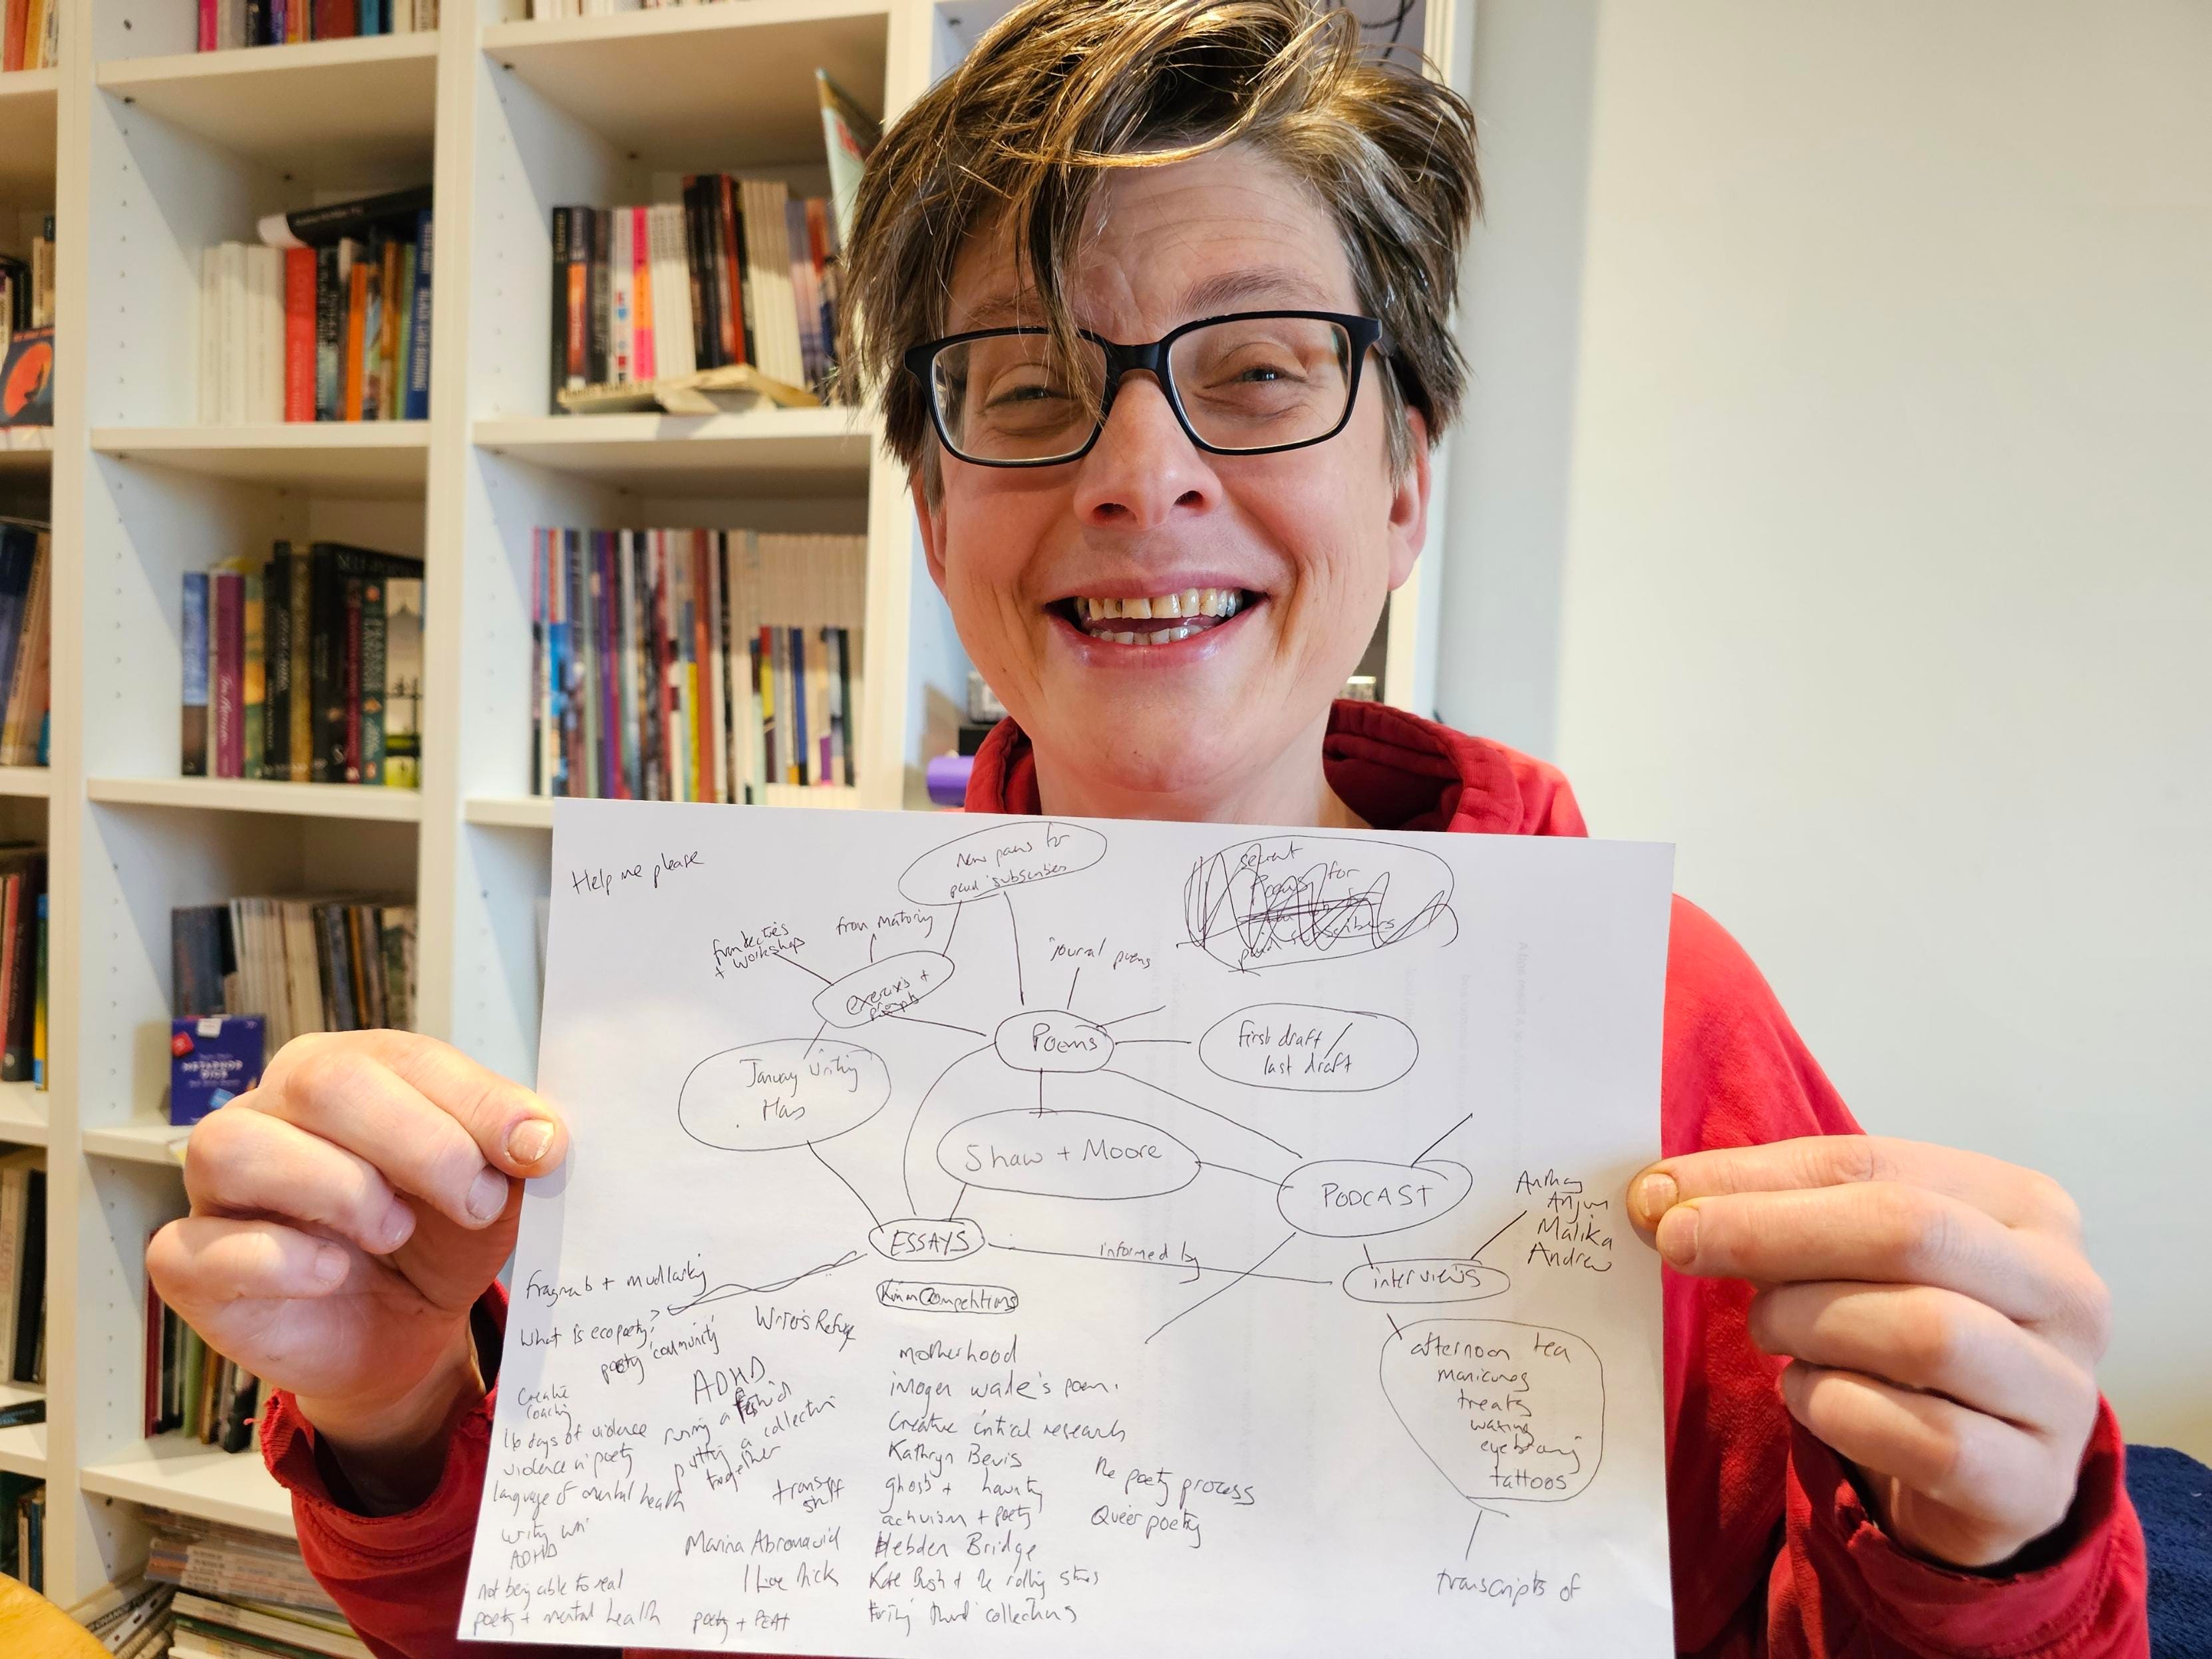 Help me please
New poems for
paid subscribers
secret
Poems for
paid subscribers
from lectures
+ workshops
from
journal poems
exercises +
prompts
Poems
first draft /
last draft
January Writing
Hours
Shaw + Moore
PODCAST
ESSAYS
informed by
interviews
Anthony
Anjum
Malika
Andrew
afternoon tea
manicures
treats
waxing
tattoos
transcripts of
Competitions
What is ecopoetry?
poetry 'community'
Writer's Refuge
Creative
Coaching
ADHD
16 days of violence
violence in poetry
language of mental health
running a festival
putting a collection
together
stuff
writing with
ADHD
not being able to read
poetry + mental health
Marina Abromavich
I Love Dick
poetry + PEAT
motherhood
imogen wade's poem.
Creative critical research
Kathryn Bevis
ghosts + haunting
activism + poetry
Hebden Bridge
Kate Bush + the rolling stones
third collections
The poetry process
Queer poetry
METAPHOR
DICE